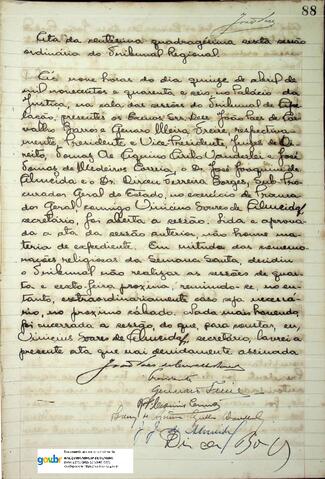 88
Acta da centesima quadragesima sexta sessão
ordinaria do Tribunal Regional.
Ás nove horas do dia quinze de abril de
mil novecentos e quarenta e seis, no Palacio da
Justiça, na sala das sessões do Tribunal de Ape-
lação, presentes os Exmos Srs. Des. João Paes de Car-
valho Barros e Genaro Freire, respectiva-
mente, Presidente e Vice-Presidente, Juizes de Di-
reito, Tomas de Wanderlei e José
Tomas de Medeiros Correia, e Dr. José Joaquim de
Almeida e o Dr. Dirceu Borges, Sub-Pro-
curador Geral do Estado, no exercicio de Procura-
dor Geral, comigo Vinicius Soares de Almeida,
secretário, foi aberta a sessão. Lida e aprova-
da a ata da sessão anterior, não houve ma-
teria de expediente. Em virtude das comemo-
rações religiosas da Semana Santa, decidiu
o Tribunal não realizar as sessões de quar-
ta e sexta feira proxima, reunindo-se, no en-
tanto, extraordinariamente caso seja necessá-
rio, no proximo sábado. Nada mais havendo,
foi encerrada a sessão, do que, para constar, eu,
Vinicius Soares de Almeida, secretário, lavrei a
presente ata que vai devidamente assinada.
Presidente
gov.br